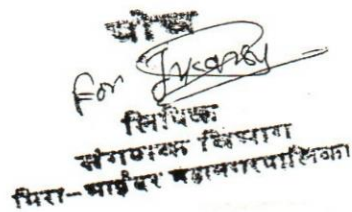 पोच
For
लिपिक
संगणक विभाग
मिरा-भाईंदर महानगरपालिका